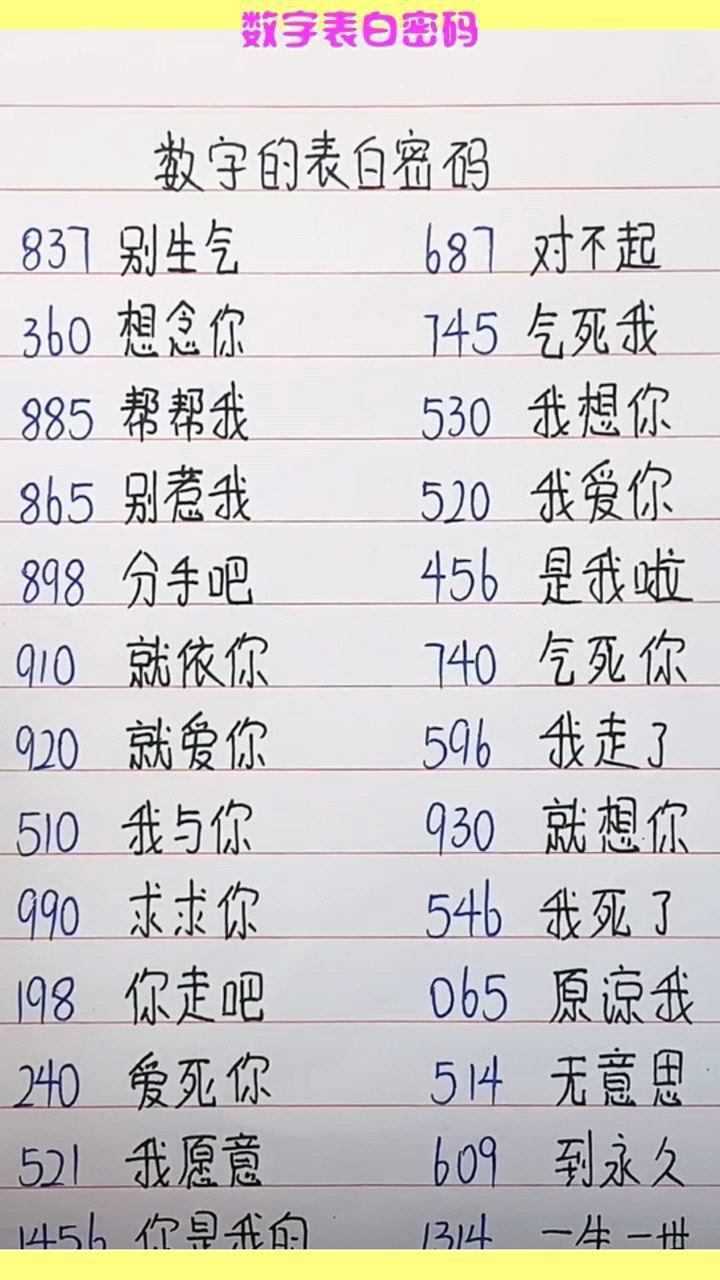 数字表白密码
数字的表白密码
837 别生气 687 对不起
360 想念你 745 气死我
885 帮帮我 530 我想你
865 别惹我 520 我爱你
898 分手吧 456 是我啦
910 就依你 740 气死你
920 就爱你 596 我走了
510 我与你 930 就想你
990 求求你 546 我死了
198 你走吧 065 原谅我
240 爱死你 514 无意思
521 我愿意 609 到永久
1456 你是我的 1314 一生一世